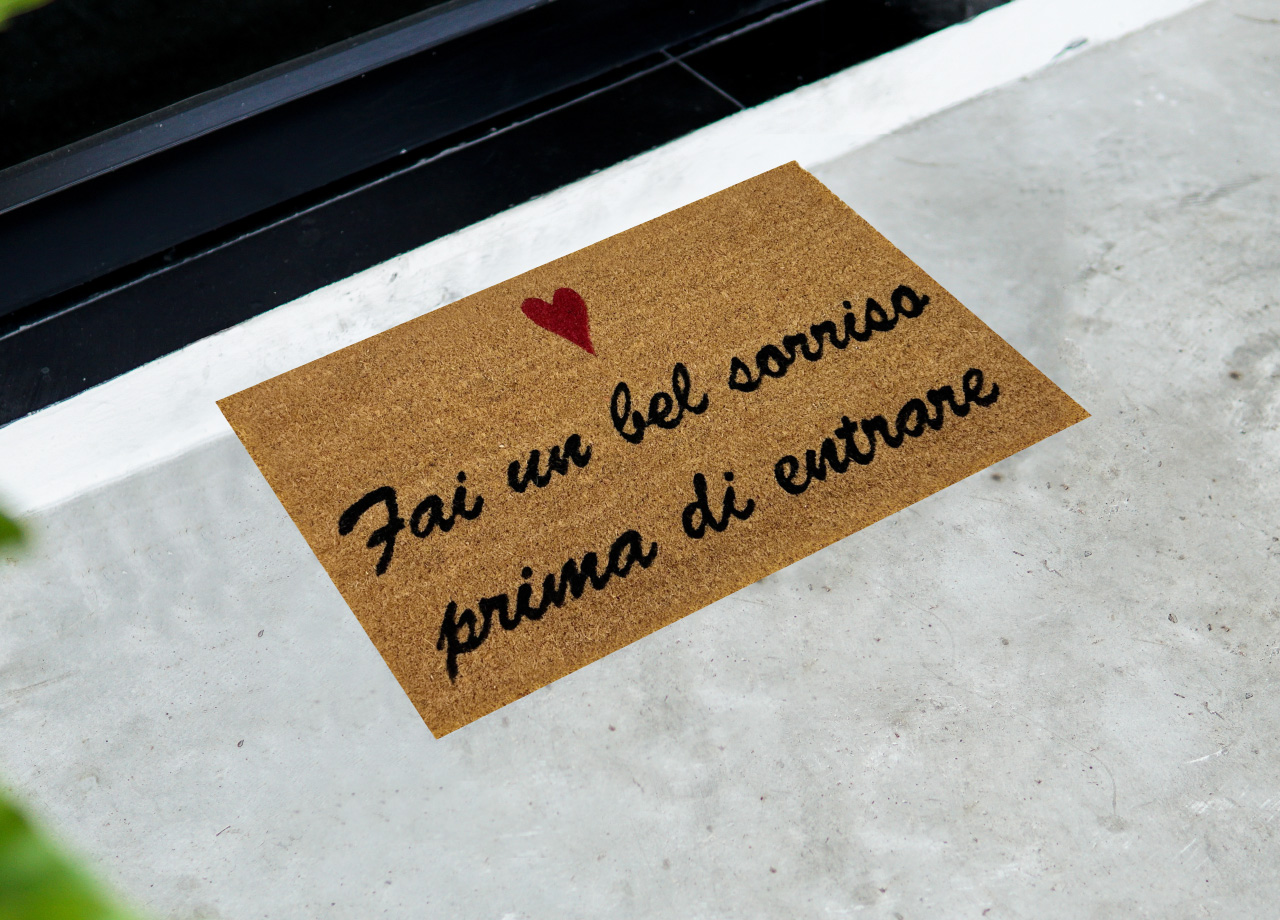 Fai un bel sorriso
prima di entrare